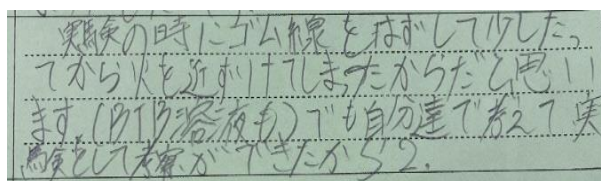 実験の時にゴム線をはずして少したっ
てから火を近ずけてしまったからだと思い
ます。(BTB溶液も)でも自分達で考えて実
験をして考察ができたから2.